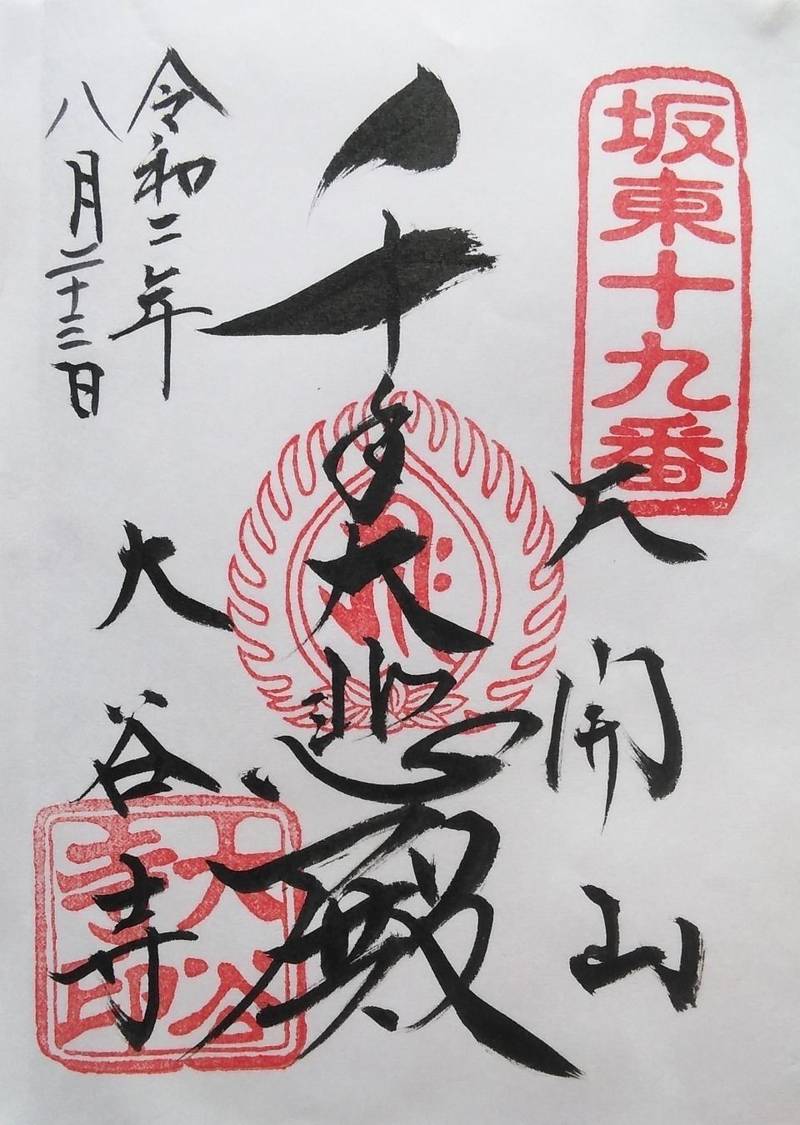 坂東十九番
天開山
千手大悲殿
大谷寺
令和二年
八月二十三日
大谷
寺印